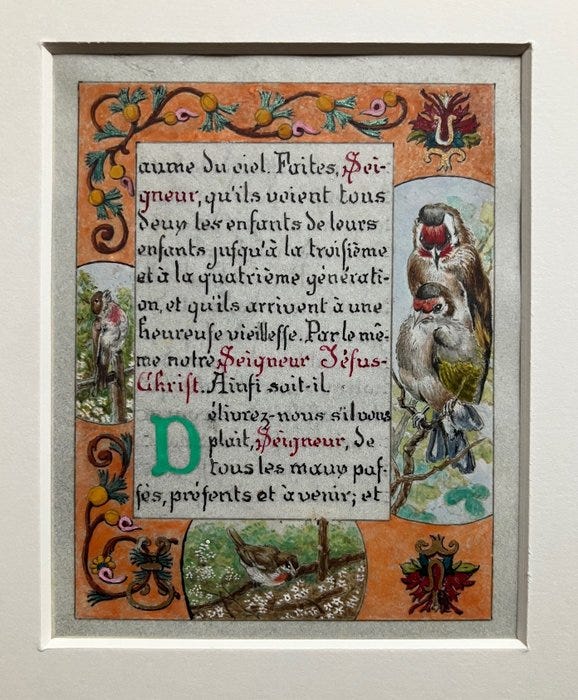 aume du ciel. Faites, Sei-
gneur, qu'ils voient tous
deux les enfants de leurs
enfants jusqu'à la troisième
et à la quatrième générati-
on, et qu'ils arrivent à une
heureuse vieillesse. Par le mê-
me notre Seigneur Jésus-
Christ. Ainsi soit-il.
Délivrez-nous s'il vous
plait, Seigneur, de
tous les maux pas-
sés, présents et à venir; et